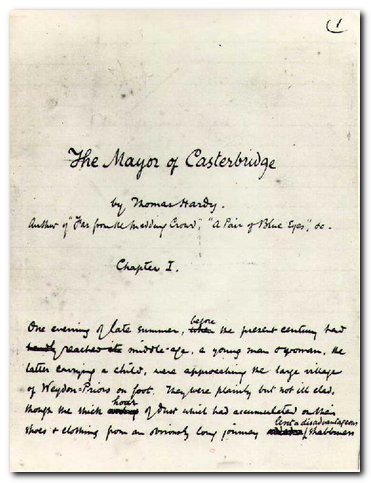 1
The Mayor of Casterbridge
by Thomas Hardy.
Author of "Far from the Madding Crowd", "A Pair of Blue Eyes", &c.
Chapter I.
before
One evening of late summer, when the present century had
hardly reached its middle-age, a young man & woman, the
latter carrying a child, were approaching the large village
of Weydon-Priors on foot. They were plainly but not ill clad,
hoar
though the thick of dust which had accumulated on their
lent a disadvantageous
shoes & clothing from an obviously long journey shabbiness